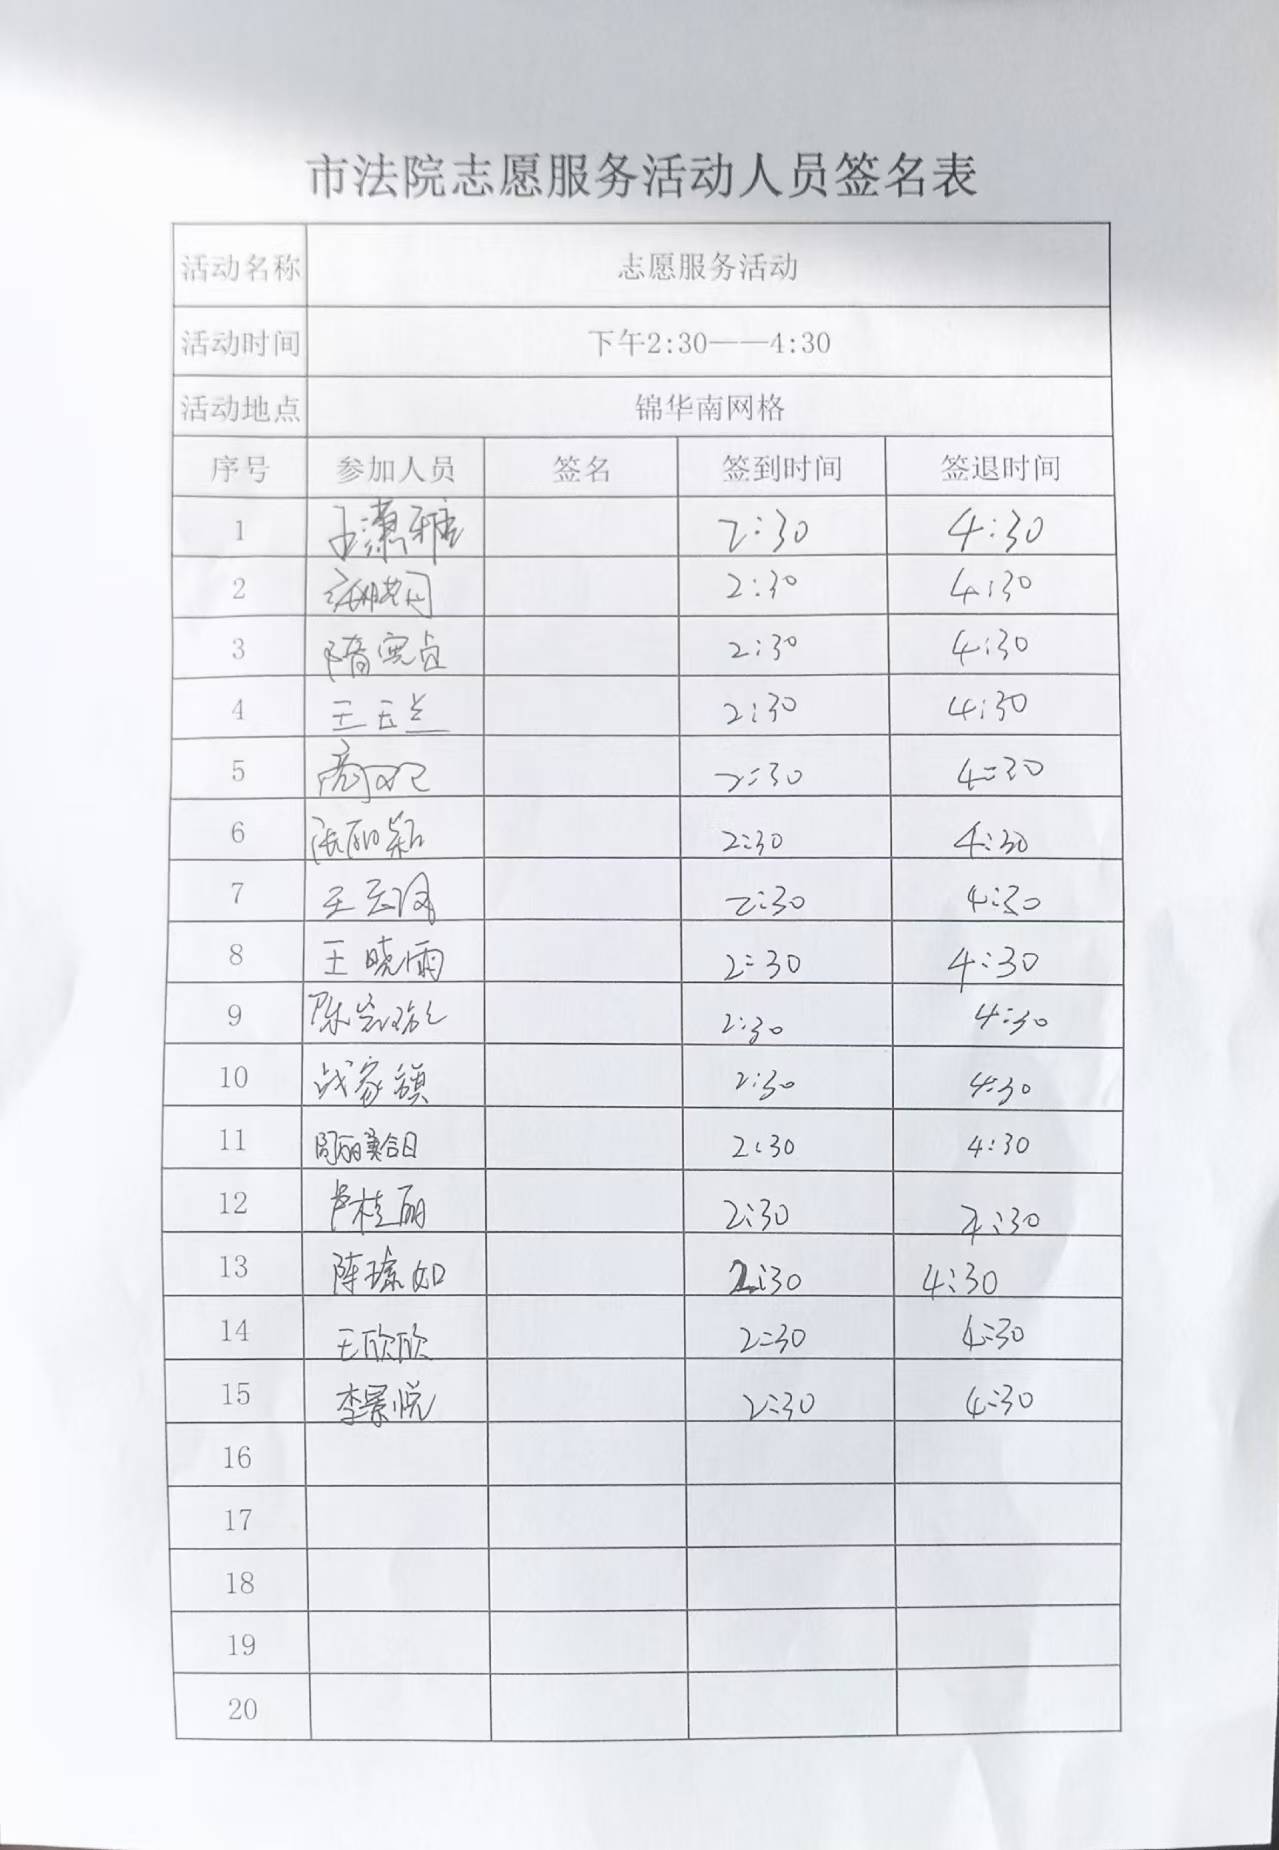 市法院志愿服务活动人员签名表
活动名称 志愿服务活动
活动时间 下午2:30——4:30
活动地点 锦华南网格
序号 参加人员 签名 签到时间 签退时间
1 王潇糖 2:30 4:30
2 2:30 4:30
3 隋 贞 2:30 4:30
4 王玉兰 2:30 4:30
5 2:30 4:30
6 张丽颖 2:30 4:30
7 王云 2:30 4:30
8 王晓雨 2:30 4:30
9 陈 2:30 4:30
10 战家 2:30 4:30
11 周丽 2:30 4:30
12 卢桂丽 2:30 4:30
13 陈琼如 2:30 4:30
14 王欣欣 2:30 4:30
15 李景悦 2:30 4:30
16
17
18
19
20